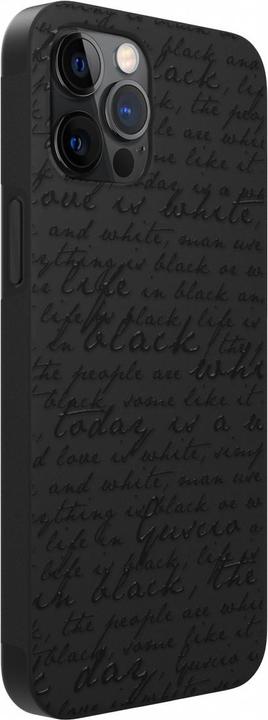 in black and
black, li
k, the peo
people are white
some like it
today is a w
love is white,
and white, man use
ything is black or w
life in black an
life is black, life is
in black, the
the people are whi
black, some like it
today is a w
d love is white, simp
and white, man use
ything is black or w
life in Guscio a
life is black, life is
in black, the
the people are white
black, some like it
day, Guscio is